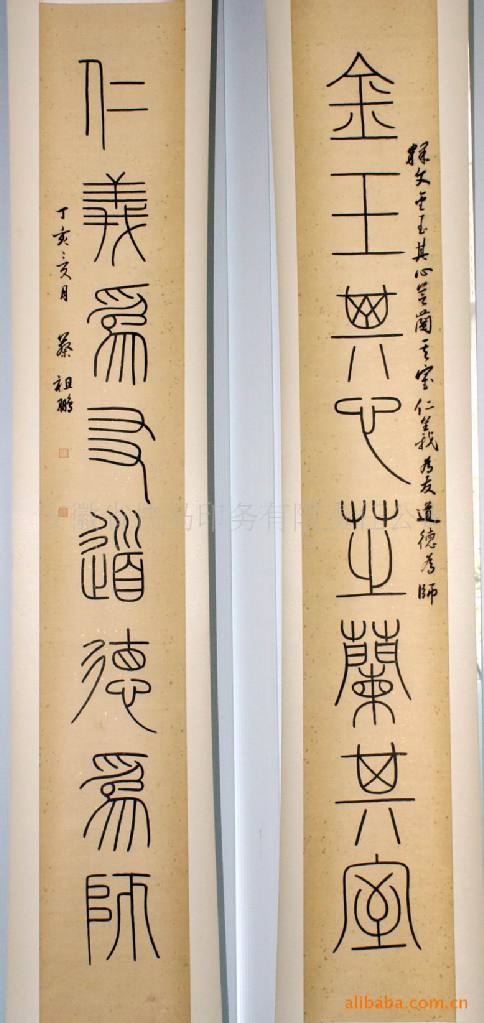 金玉其心芝蘭其室
釋文金玉其心芝蘭其室仁義为友道德为師
仁義爲友道德爲師
丁亥夏月 蔡祖鵬
印务有限公
alibaba.com.cn